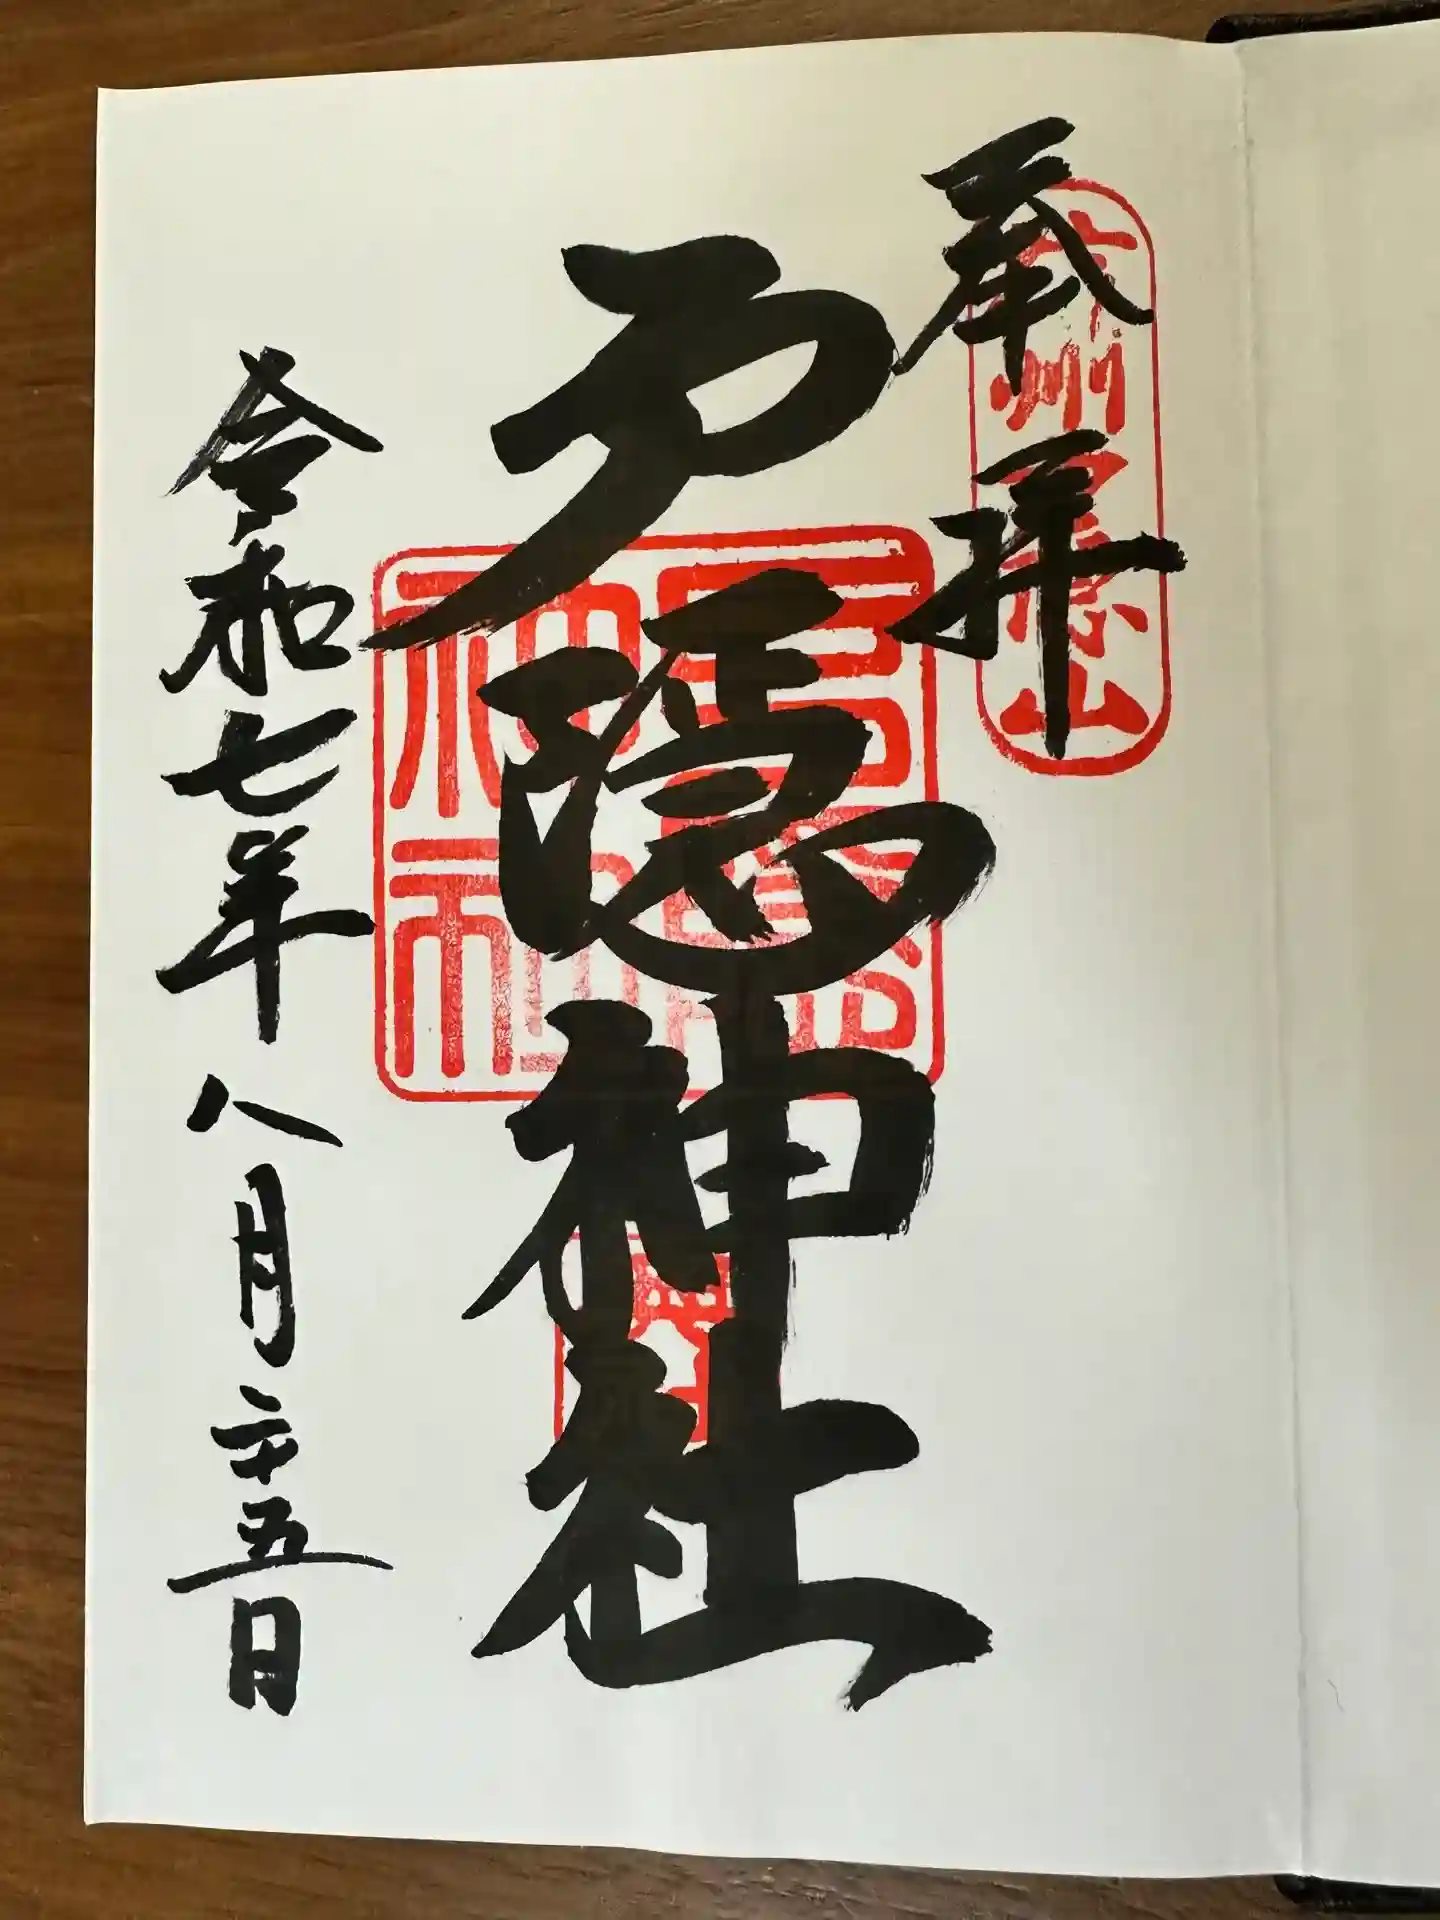 奉拝
信州戸隠山
戸隠神社
戸隱神社
令和七年八月二十五日